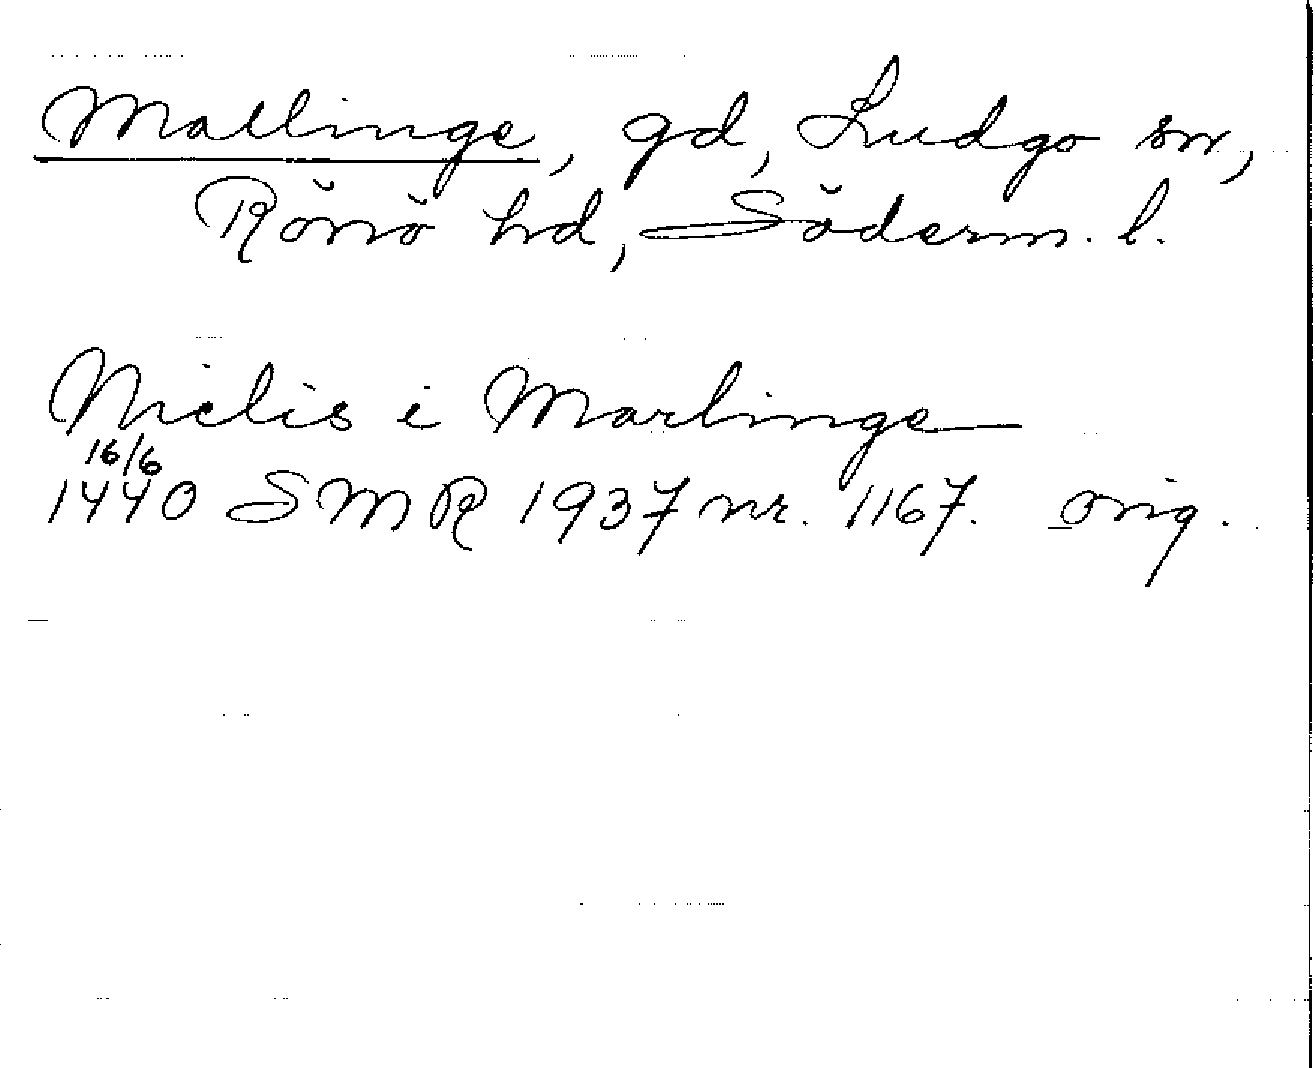 Mallinge, gd, Ludgo sn,
Rönö hd, Söderm. l.
Nielis i Marlinge
16/6
1440 SMR 1937 nr. 1167. orig.